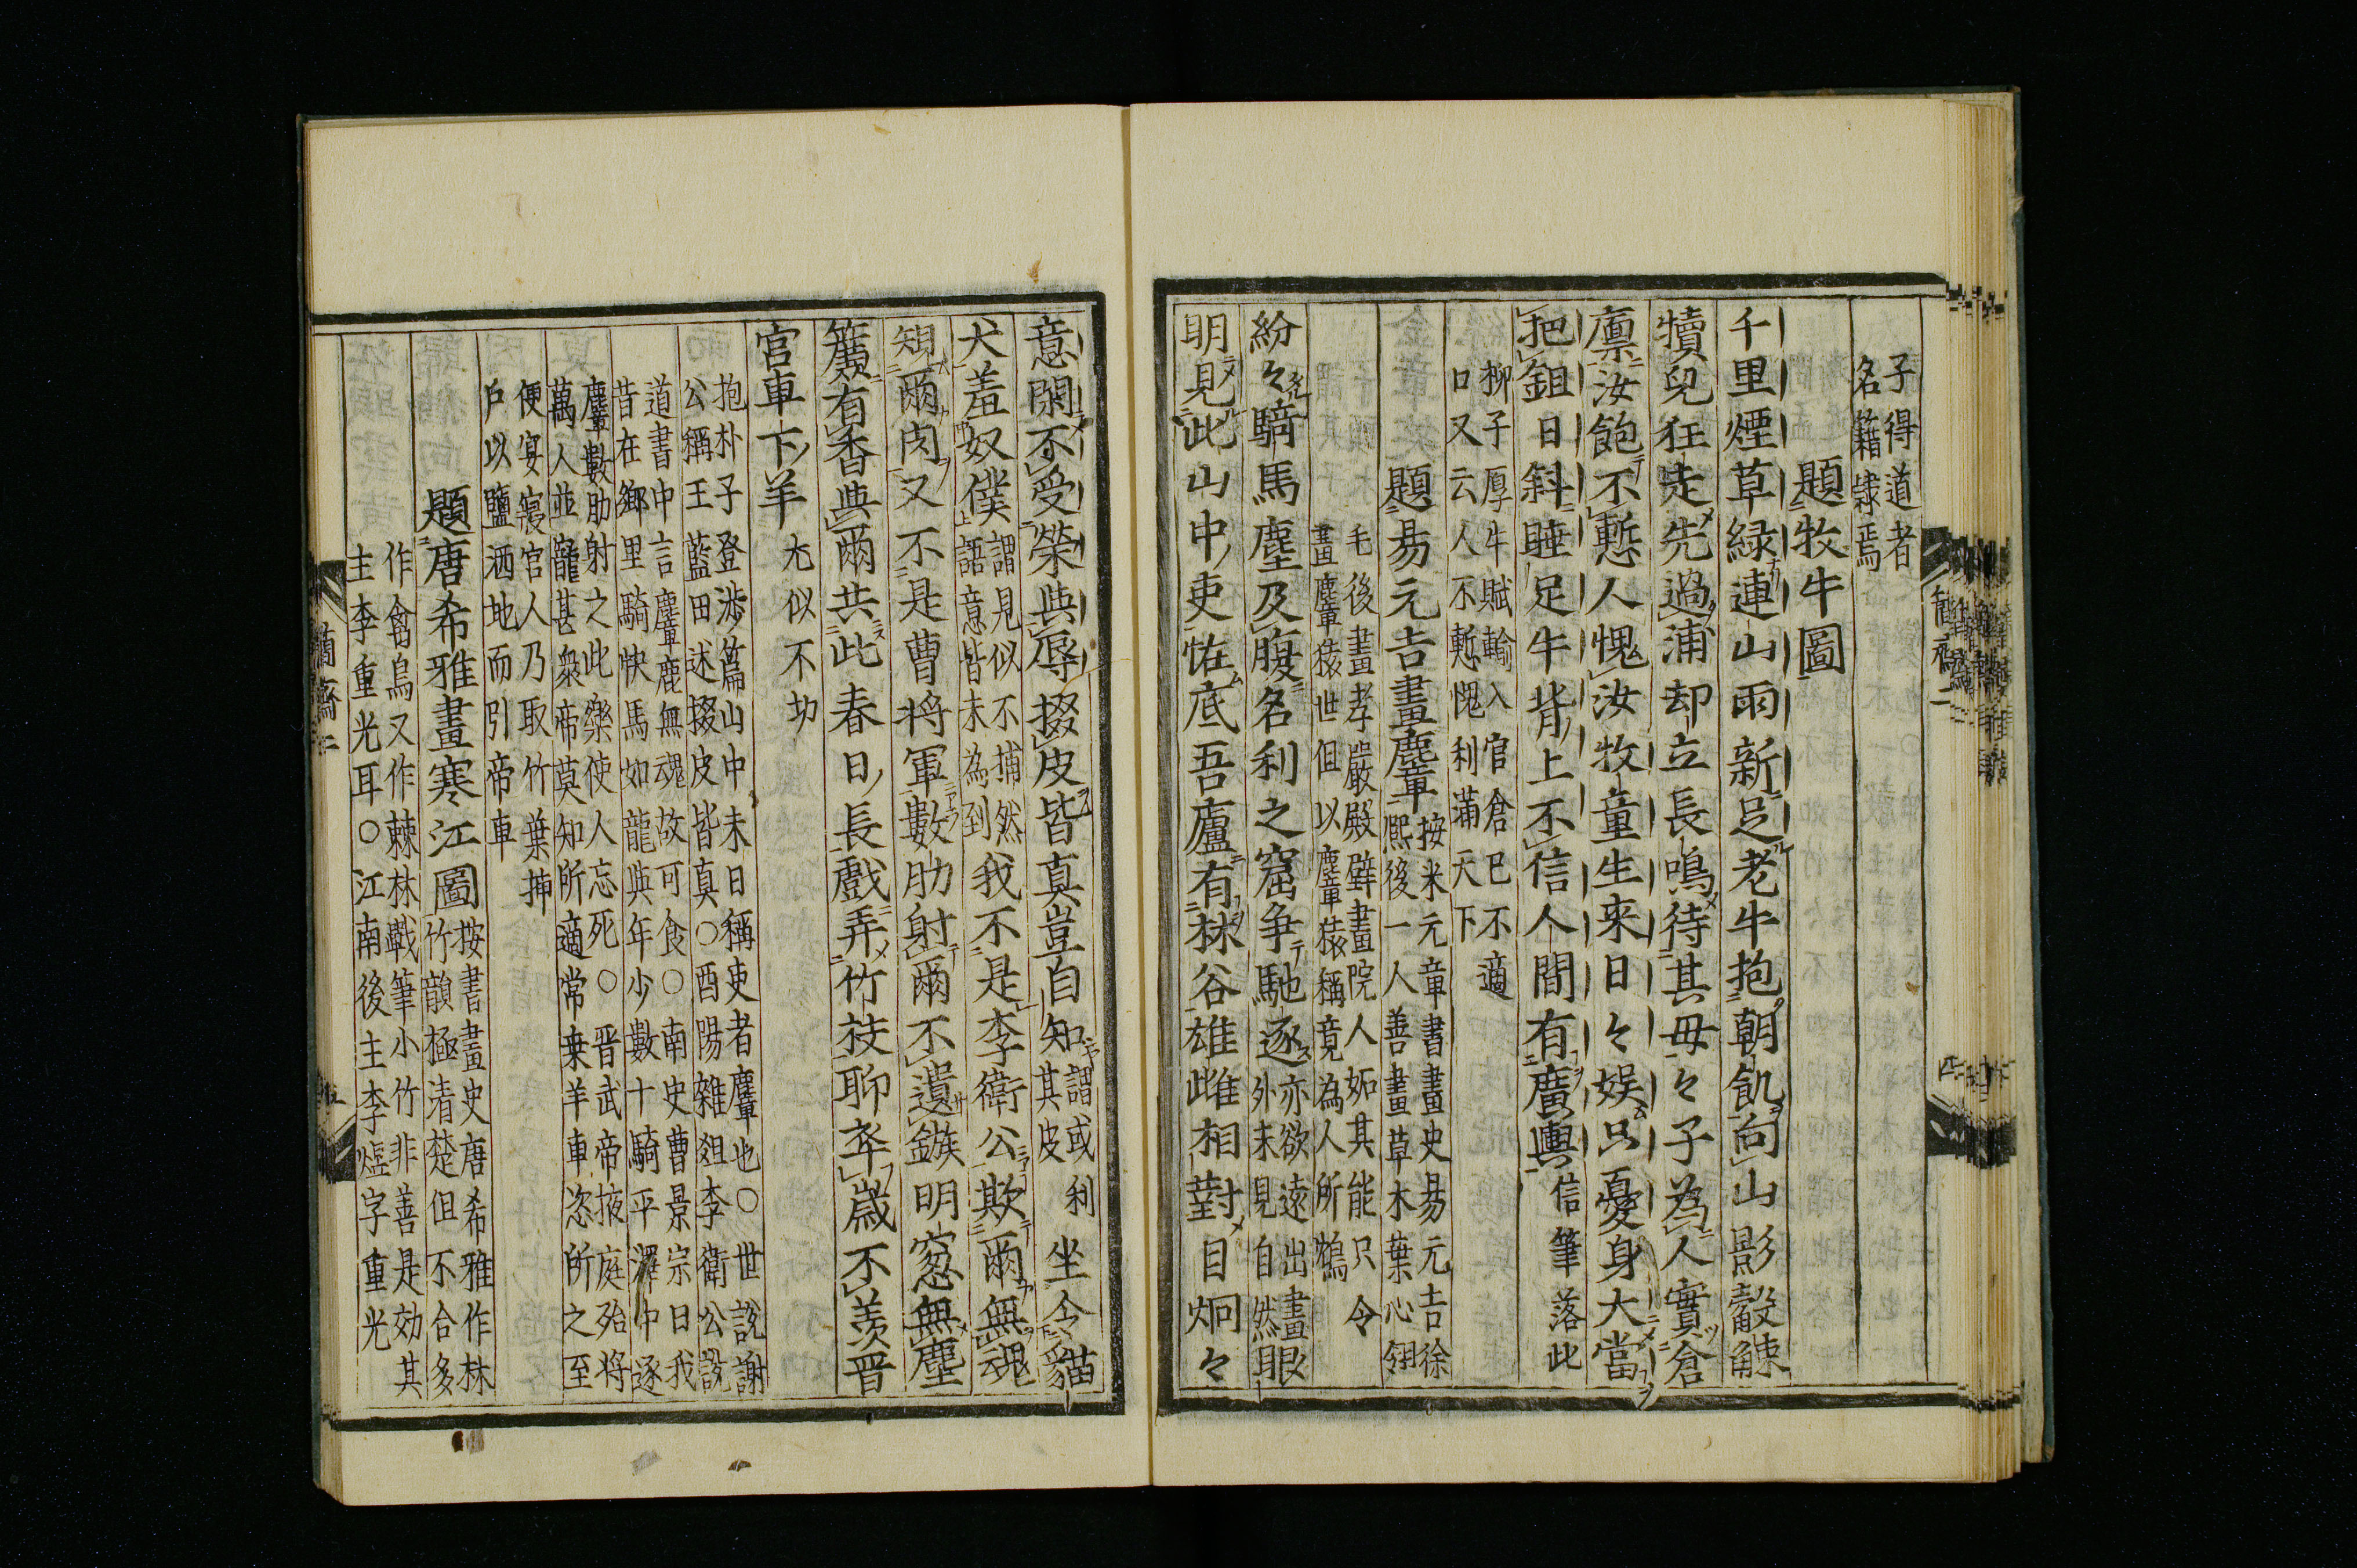 子得道者
名籍隷焉
題牧牛圖
千里煙草緑連山雨新足老牛抱朝飢向山影觳觫
犢兒狂走先過浦却立長鳴待其母々子為人實倉
廪汝飽不慙人愧汝牧童生来日々娯只憂身大當
把鉏日斜睡足牛背上不信人間有廣輿信筆落此
柳子厚牛賦輸入官倉已不適
口又云人不慙愧利滿天下
題易元吉畫麞按米元章書畫史易元吉徐
熙後一人善畫草木葉心翎
毛後畫孝嚴殿壁畫院人妬其能只令
畫麞猿世但以麞猿稱竟為人所鴆
紛々騎馬塵及腹名利之窟争馳逐亦欲遠出畫眼
外末見自然眼
明見此山中吏怪底吾廬有林谷雄雌相對目炯々
意閑不受榮與辱掇皮皆真豈自知謂或利
其皮坐令貓
犬羞奴僕謂見似不捕然
上語意皆未為到我不是李衛公欺爾無魂
規爾肉又不是曹将軍數肋射爾不遺鏃明窓無塵
簾有香與爾共此春日長戲弄竹枝聊卒歳不羨晋
宮車下羊尤似不切
抱朴子登渉篇山中未日稱吏者麞也○世説謝
公稱王藍田述掇皮皆真○酉陽雜爼李衛公説
道書中言麞鹿無魂故可食○南史曹景宗日我
昔在郷里騎快馬如龍與年少數十騎平澤中逐
麞數肋射之此樂使人忘死○晋武帝掖庭殆将
萬人並寵甚衆帝莫知所適常乗羊車恣所之至
便宴寝宮人乃取竹葉挿
戸以鹽洒地而引帝車
題唐希雅畫寒江圖按書畫史唐希雅作林
竹韻極清楚但不合多
作禽鳥又作棘林戰筆小竹非善是効其
主李重光耳○江南後主李煜字重光
簡齋二